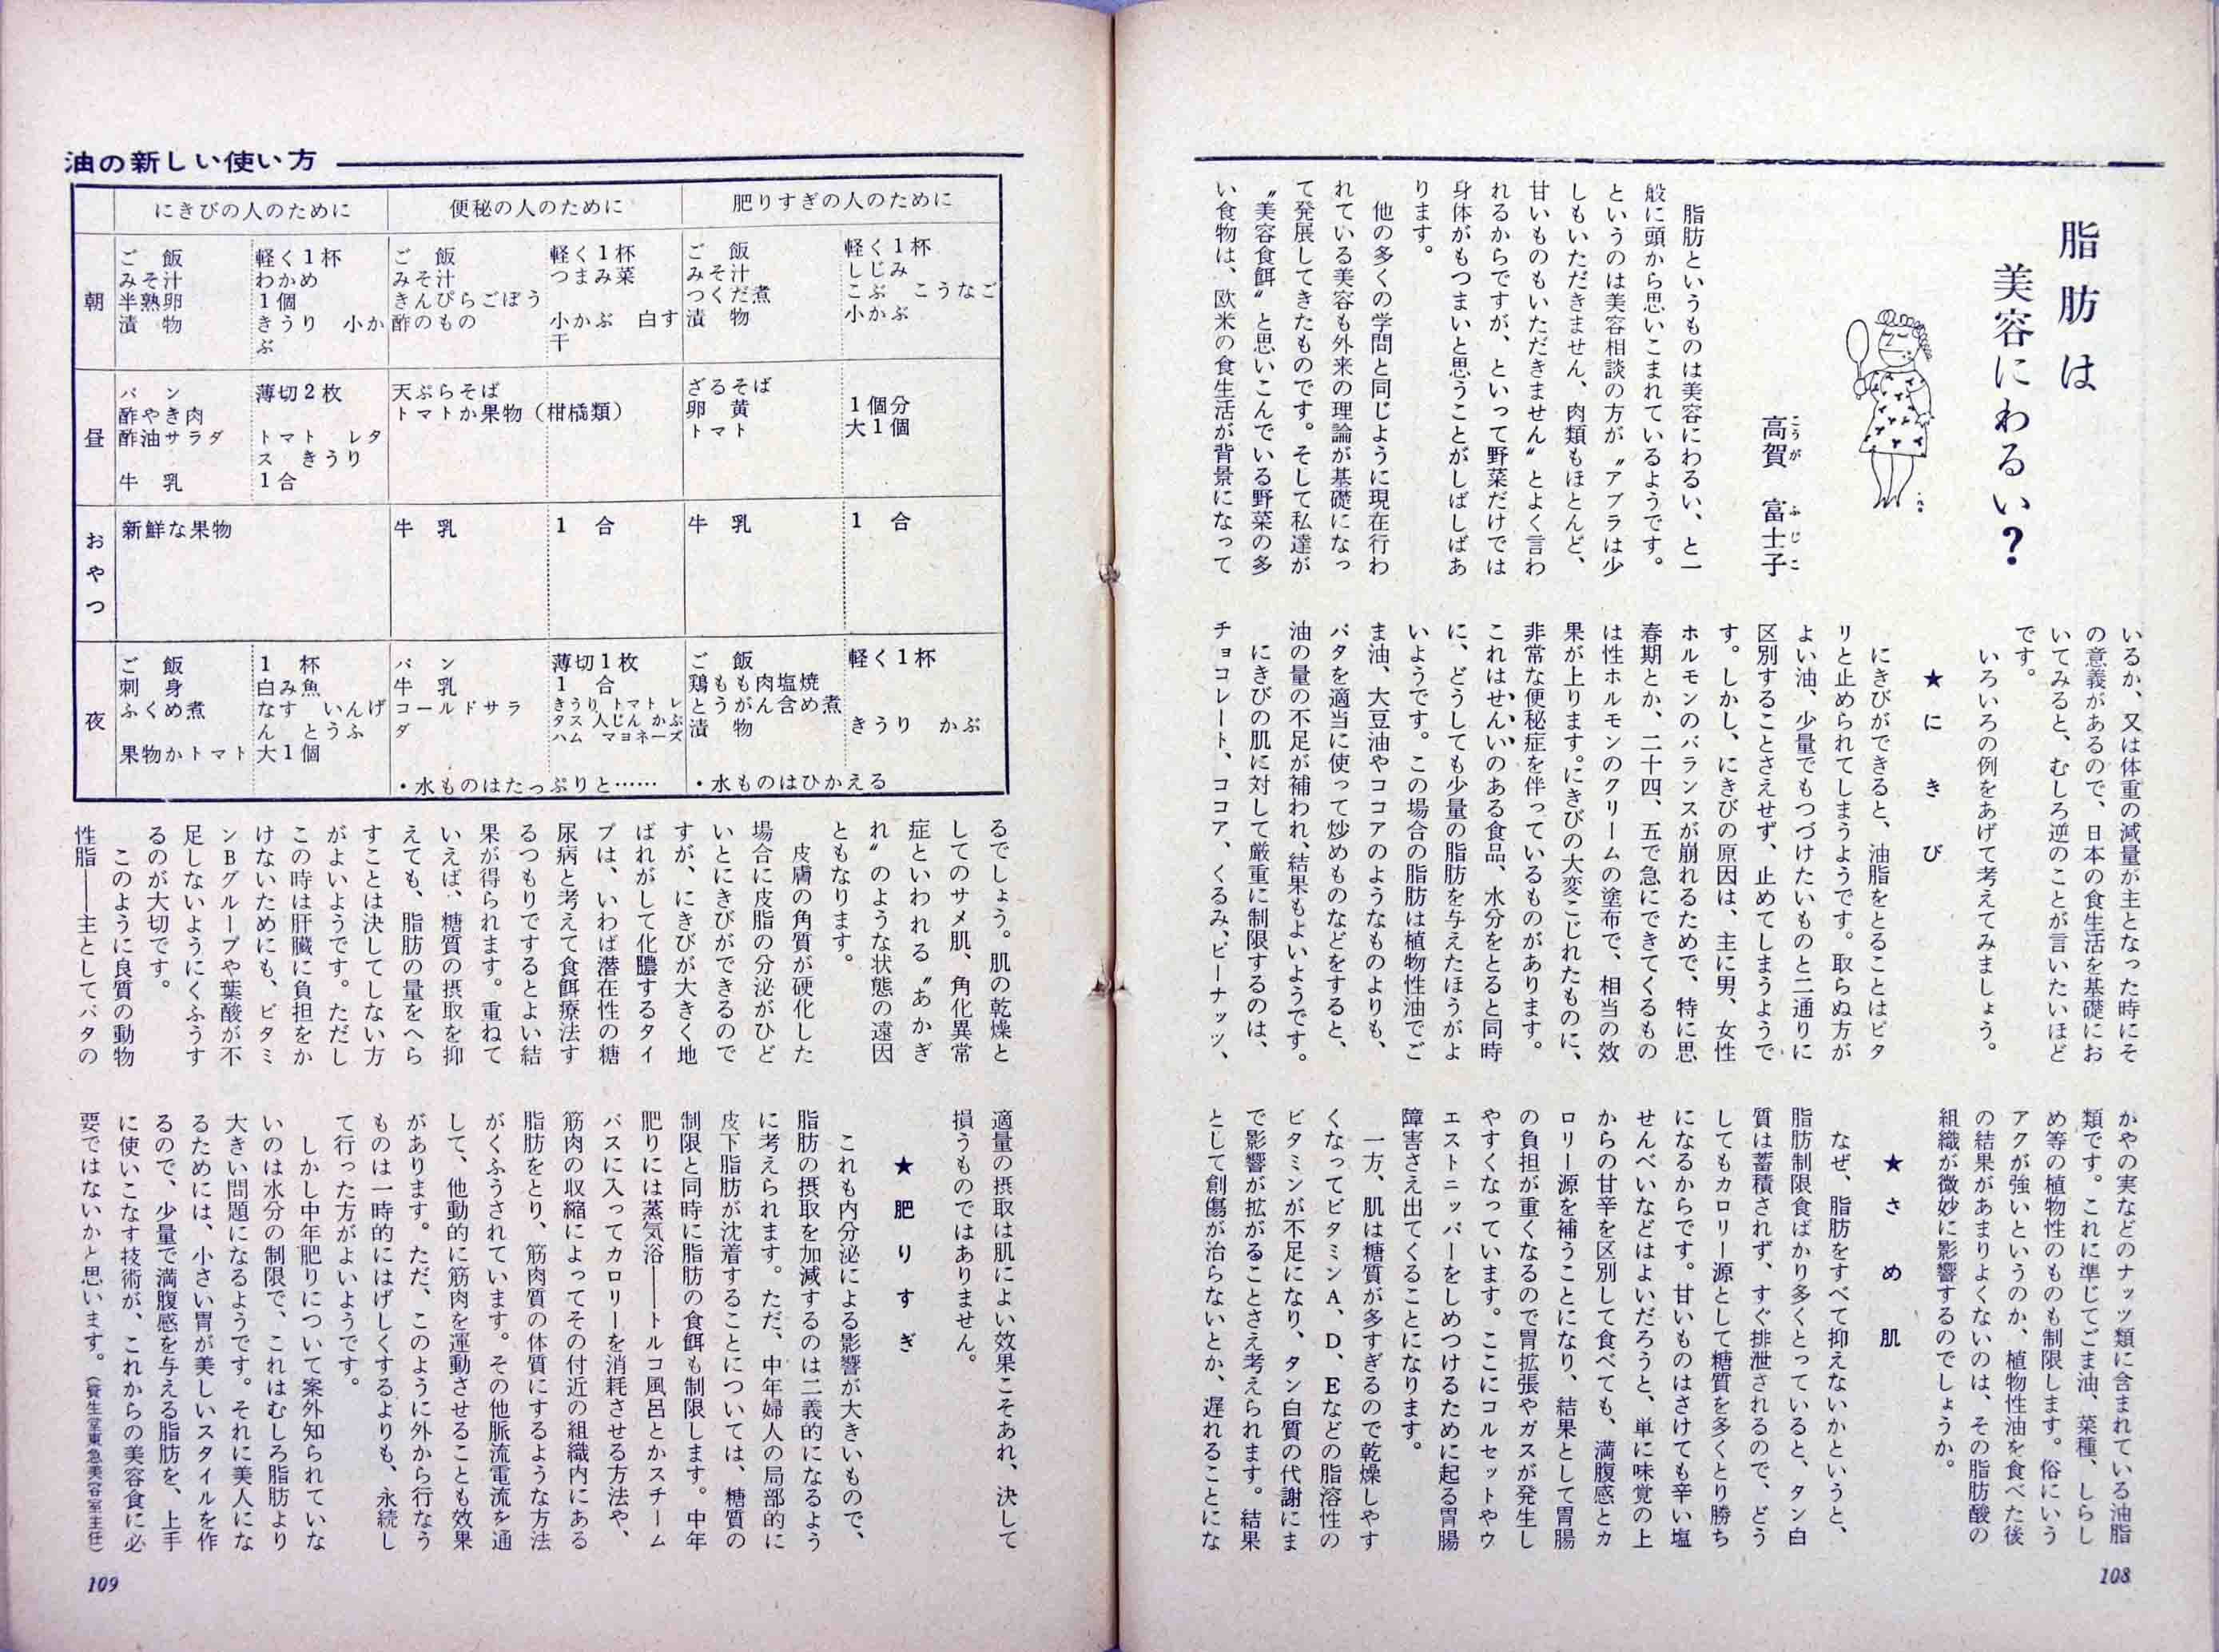 脂肪は
美容にわるい？
高賀　富士子
こうが　ふじこ
脂肪というものは美容にわるい、と一
般に頭から思いこまれているようです。
というのは美容相談の方が〝アブラは少
しもいただきません、肉類もほとんど、
甘いものもいただきません〟とよく言わ
れるからですが、といって野菜だけでは
身体がもつまいと思うことがしばしばあ
ります。
他の多くの学問と同じように現在行わ
れている美容も外来の理論が基礎になっ
て発展してきたものです。そして私達が
〝美容食餌〟と思いこんでいる野菜の多
い食物は、欧米の食生活が背景になって
いるか、又は体重の減量が主となった時にそ
の意義があるので、日本の食生活を基礎にお
いてみると、むしろ逆のことが言いたいほど
です。
いろいろの例をあげて考えてみましょう。
★にきび
にきびができると、油脂をとることはピタ
リと止められてしまうようです。取らぬ方が
よい油、少量でもつづけたいものと二通りに
区別することさえせず、止めてしまうようで
す。しかし、にきびの原因は、主に男、女性
ホルモンのバランスが崩れるためで、特に思
春期とか、二十四、五で急にできてくるもの
は性ホルモンのクリームの塗布で、相当の効
果が上ります。にきびの大変こじれたものに、
非常な便秘症を伴っているものがあります。
これはせんいのある食品、水分をとると同時
に、どうしても少量の脂肪を与えたほうがよ
いようです。この場合の脂肪は植物性油でご
ま油、大豆油やココアのようなものよりも、
バタを適当に使って炒めものなどをすると、
油の量の不足が補われ、結果もよいようです。
にきびの肌に対して厳重に制限するのは、
チョコレート、ココア、くるみ、ピーナッツ、
かやの実などのナッツ類に含まれている油脂
類です。これに準じてごま油、菜種、しらし
め等の植物性のものも制限します。俗にいう
アクが強いというのか、植物性油を食べた後
の結果があまりよくないのは、その脂肪酸の
組織が微妙に影響するのでしょうか。
★さめ肌
なぜ、脂肪をすべて抑えないかというと、
脂肪制限食ばかり多くとっていると、タン白
質は蓄積されず、すぐ排泄されるので、どう
してもカロリー源として糖質を多くとり勝ち
になるからです。甘いものはさけても辛い塩
せんべいなどはよいだろうと、単に味覚の上
からの甘辛を区別して食べても、満腹感とカ
ロリー源を補うことになり、結果として胃腸
の負担が重くなるので胃拡張やガスが発生し
やすくなっています。ここにコルセットやウ
エストニッパーをしめつけるために起る胃腸
障害さえ出てくることになります。
一方、肌は糖質が多すぎるので乾燥しやす
くなってビタミンA、D、Eなどの脂溶性の
ビタミンが不足になり、タン白質の代謝にま
で影響が拡がることさえ考えられます。結果
として創傷が治らないとか、遅れることにな
108
油の新しい使い方
にきびの人のために　便秘の人のために　肥りすぎの人のために
朝
ご　飯　軽く1杯　ご　飯　軽く1杯　ご　飯　軽く1杯
みそ汁　わかめ　みそ汁　つまみ菜　みそ汁　しじみ
半熟卵　1個　きんぴらごぼう　つくだ煮　こぶ　こうなご
漬　物　きうり　小か　酢のもの　小かぶ　白す　漬　物　小かぶ
ぶ　干
昼
パ　ン　薄切2枚　天ぷらそば　ざるそば
酢やき肉　トマトか果物（柑橘類）　卵　黄　1個分
酢油サラダ　トマト　レタ　トマト　大1個
ス　きうり
牛　乳　1合
おやつ
新鮮な果物　牛　乳　1　合　牛　乳　1　合
夜
ご　飯　1　杯　パ　ン　薄切1枚　ご　飯　軽く1杯
刺　身　白み魚　牛　乳　1　合　鶏もも肉塩焼
ふくめ煮　なす　いんげ　コールドサラ　きうり　トマト　レ　とうがん含め煮
ん　とうふ　ダ　タス　人じん　かぶ　漬　物　きうり　かぶ
ハム　マヨネーズ
果物かトマト　大1個
・水ものはたっぷりと……　・水ものはひかえる
るでしょう。肌の乾燥と
してのサメ肌、角化異常
症といわれる〝あかぎ
れ〟のような状態の遠因
ともなります。
皮膚の角質が硬化した
場合に皮脂の分泌がひど
いとにきびができるので
すが、にきびが大きく地
ばれがして化膿するタイ
プは、いわば潜在性の糖
尿病と考えて食餌療法す
るつもりでするとよい結
果が得られます。重ねて
いえば、糖質の摂取を抑
えても、脂肪の量をへら
すことは決してしない方
がよいようです。ただし
この時は肝臓に負担をか
けないためにも、ビタミ
ンBグループや葉酸が不
足しないようにくふうす
るのが大切です。
このように良質の動物
性脂――主としてバタの
適量の摂取は肌によい効果こそあれ、決して
損うものではありません。
★肥りすぎ
これも内分泌による影響が大きいもので、
脂肪の摂取を加減するのは二義的になるよう
に考えられます。ただ、中年婦人の局部的に
皮下脂肪が沈着することについては、糖質の
制限と同時に脂肪の食餌も制限します。中年
肥りには蒸気浴――トルコ風呂とかスチーム
バスに入ってカロリーを消耗させる方法や、
筋肉の収縮によってその付近の組織内にある
脂肪をとり、筋肉質の体質にするような方法
がくふうされています。その他脈流電流を通
して、他動的に筋肉を運動させることも効果
があります。ただ、このように外から行なう
ものは一時的にはげしくするよりも、永続し
て行った方がよいようです。
しかし中年肥りについて案外知られていな
いのは水分の制限で、これはむしろ脂肪より
大きい問題になるようです。それに美人にな
るためには、小さい胃が美しいスタイルを作
るので、少量で満腹感を与える脂肪を、上手
に使いこなす技術が、これからの美容食に必
要ではないかと思います。（養生堂東急美容室主任）
109